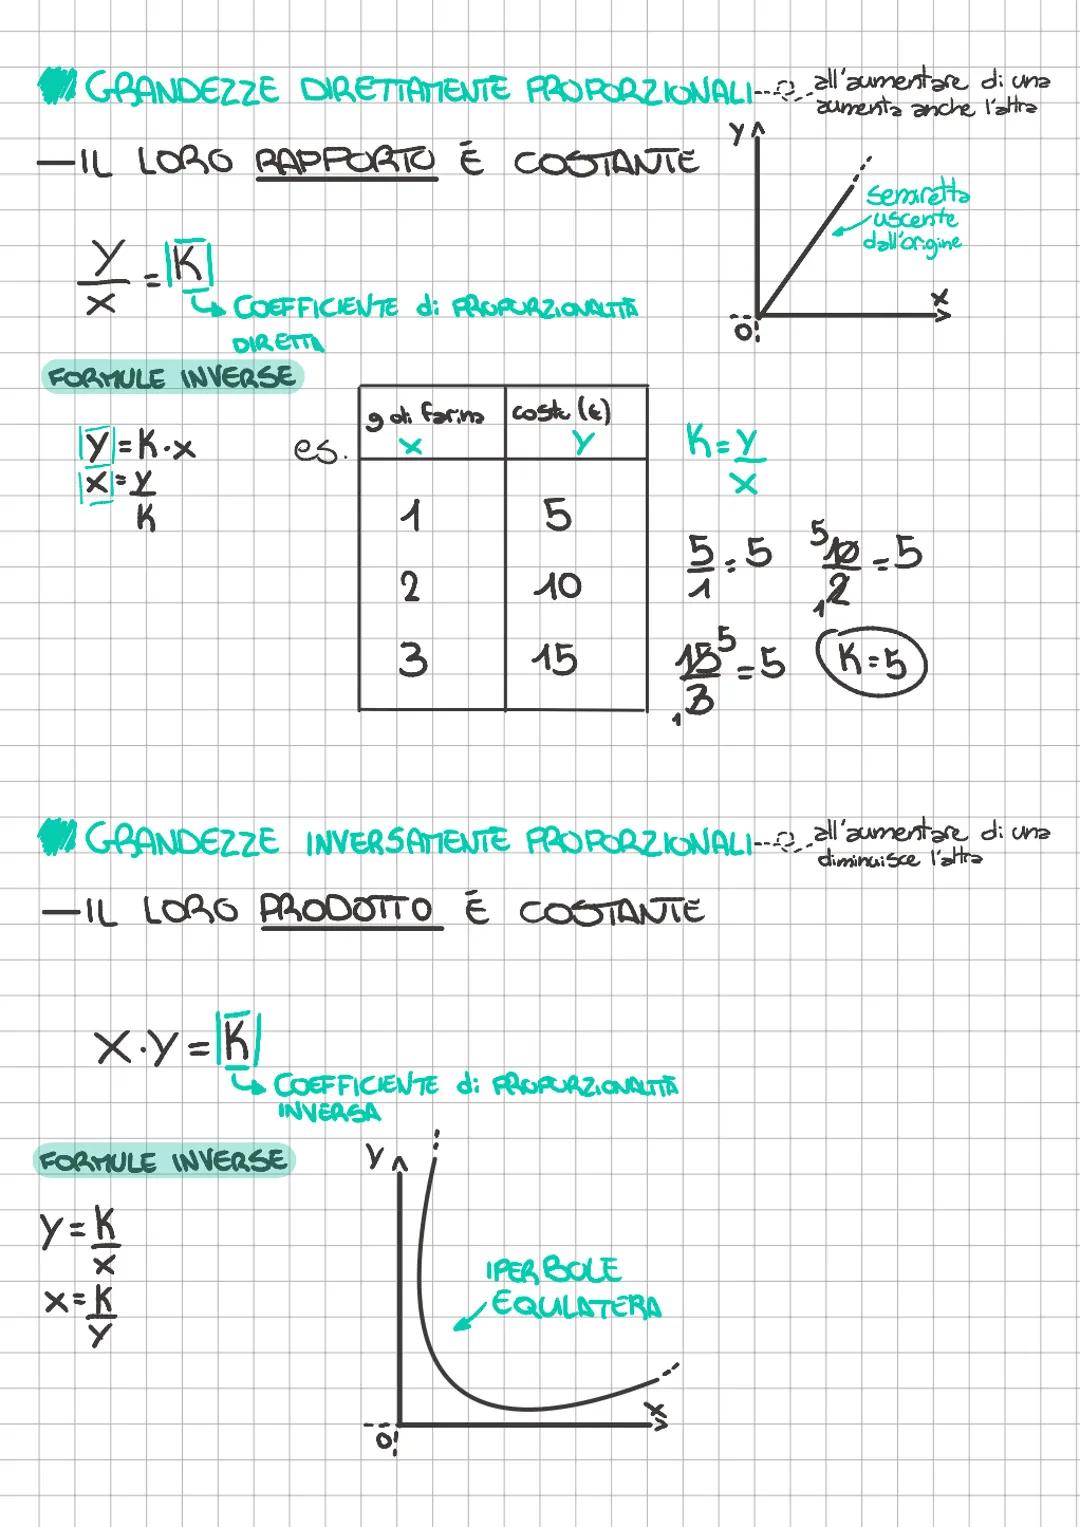 GRANDEZZE DIRETTAMENTE PROPORZIONALI
all'aumentare di una
aumenta anche l'altra
– IL LORO RAPPORTO È COSTANTE
y
semiretta
uscente
dall'origine
x
O
y/x = K
COEFFICIENTE di PROPORZIONALITÀ
DIRETTA
FORMULE INVERSE
y = K·x
x = y/K
es.
g di farina costo (€)
x y
1 5
2 10
3 15
K = y/x
5/1 = 5 10/2 = 5
5
1
15/3 = 5 K = 5
5
1
GRANDEZZE INVERSAMENTE PROPORZIONALI
all'aumentare di una
diminuisce l'altra
– IL LORO PRODOTTO È COSTANTE
X·y = K
COEFFICIENTE di PROPORZIONALITÀ
INVERSA
FORMULE INVERSE
y = K/x
x = K/y
y
IPERBOLE
EQUILATERA
x
O